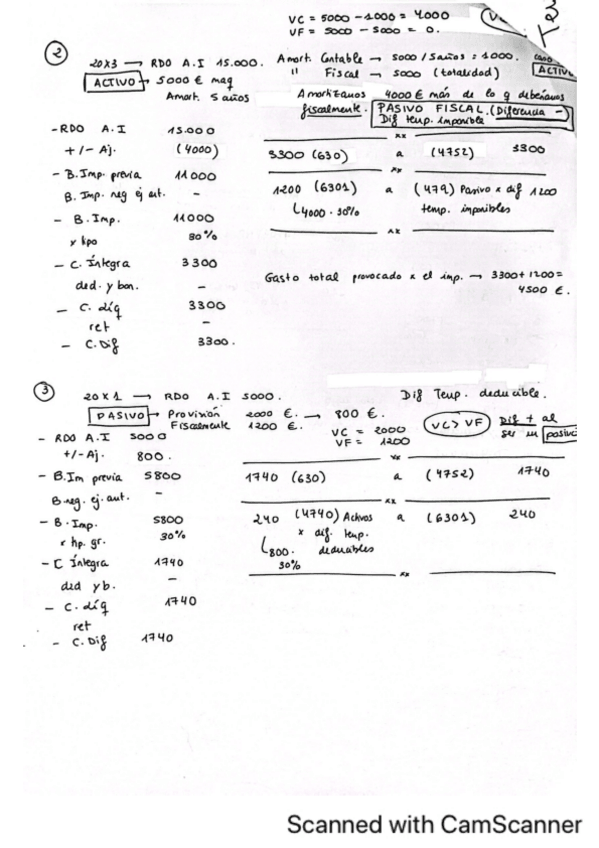 VC = 5000 - 1000 = 4000
VF = 5000 - 5000 = 0.
② 20x3 → RDO A.I 15.000. Amort. Contable → 5000 / 5 años = 1000.
ACTIVO → 5000 € maq " Fiscal → 5000 (totalidad) ACTIV
Amort. 5 años Amortizamos 4000 € más de lo q deberíamos
fiscalmente. PASIVO FISCAL. (Diferencia -)
Dif temp. imponible
- RDO A.I 15.000
+/- Aj. (4000) 3300 (630) a (4752) 3300
- B. Imp. previa 11000
B. Imp. neg ej ant. - 1200 (6301) a (479) Pasivo x dif 1200
4000 · 30% temp. imponibles
- B. Imp. 11000
x tipo 30%
- C. Íntegra 3300
Gasto total provocado x el imp. → 3300 + 1200 =
4500 €.
ded. y bon. -
- C. líq 3300
ret -
- C. Dif 3300.
③ 20x1 → RDO A.I 5000. Dif Temp. deducible.
PASIVO → Provisión 2000 €. → 800 €.
Fiscalmente 1200 €. VC = 2000 VC > VF Dif + al
VF = 1200 ser un pasivo
- RDO A.I 5000
+/- Aj. 800.
- B. Im previa 5800 1740 (630) a (4752) 1740
B. neg. ej. ant. -
- B. Imp. 5800 240 (4740) Activos a (6301) 240
x dif. temp.
x tip. gr. 30% 800. deducibles
30%
- C Íntegra 1740
ded y b. -
- C. líq 1740
ret
- C. Dif 1740
Scanned with CamScanner